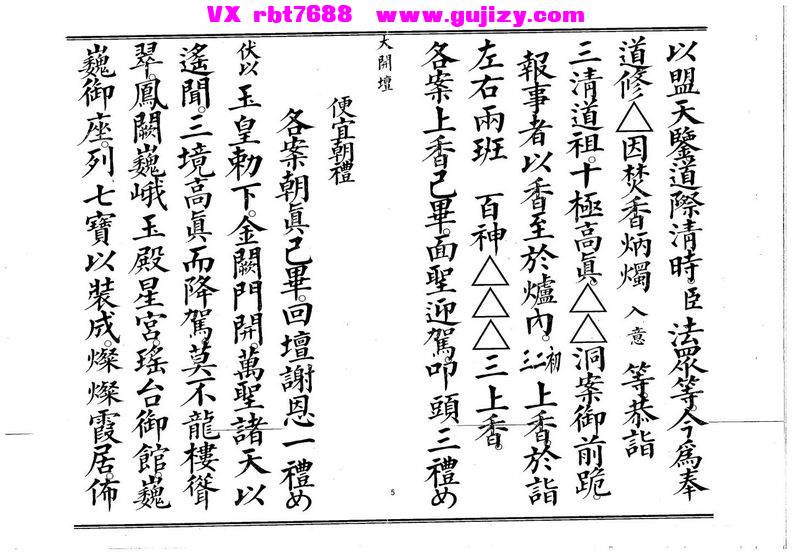 VX rbt7688 www.gujizy.com
以盟天鑒道際清時。臣 法眾等。今為奉
道修△因焚香炳燭 入意 等。恭詣
三清道祖。十極高眞。△△洞案御前跪。
報事者以香至於爐內。初二三上香於詣
左右兩班 百神△△△三上香。
各案上香已畢。面聖迎駕。叩頭三禮
大開壇
5
便宜朝禮
各案朝眞已畢。回壇謝恩一禮
伏以 玉皇勅下。金闕門開。萬聖諸天以
遙聞。三境高眞而降駕。莫不龍樓聳
翠。鳳闕巍峨。玉殿星宮。瑤台御館。巍
巍御座。列七寶以裝成。燦燦霞居。佈